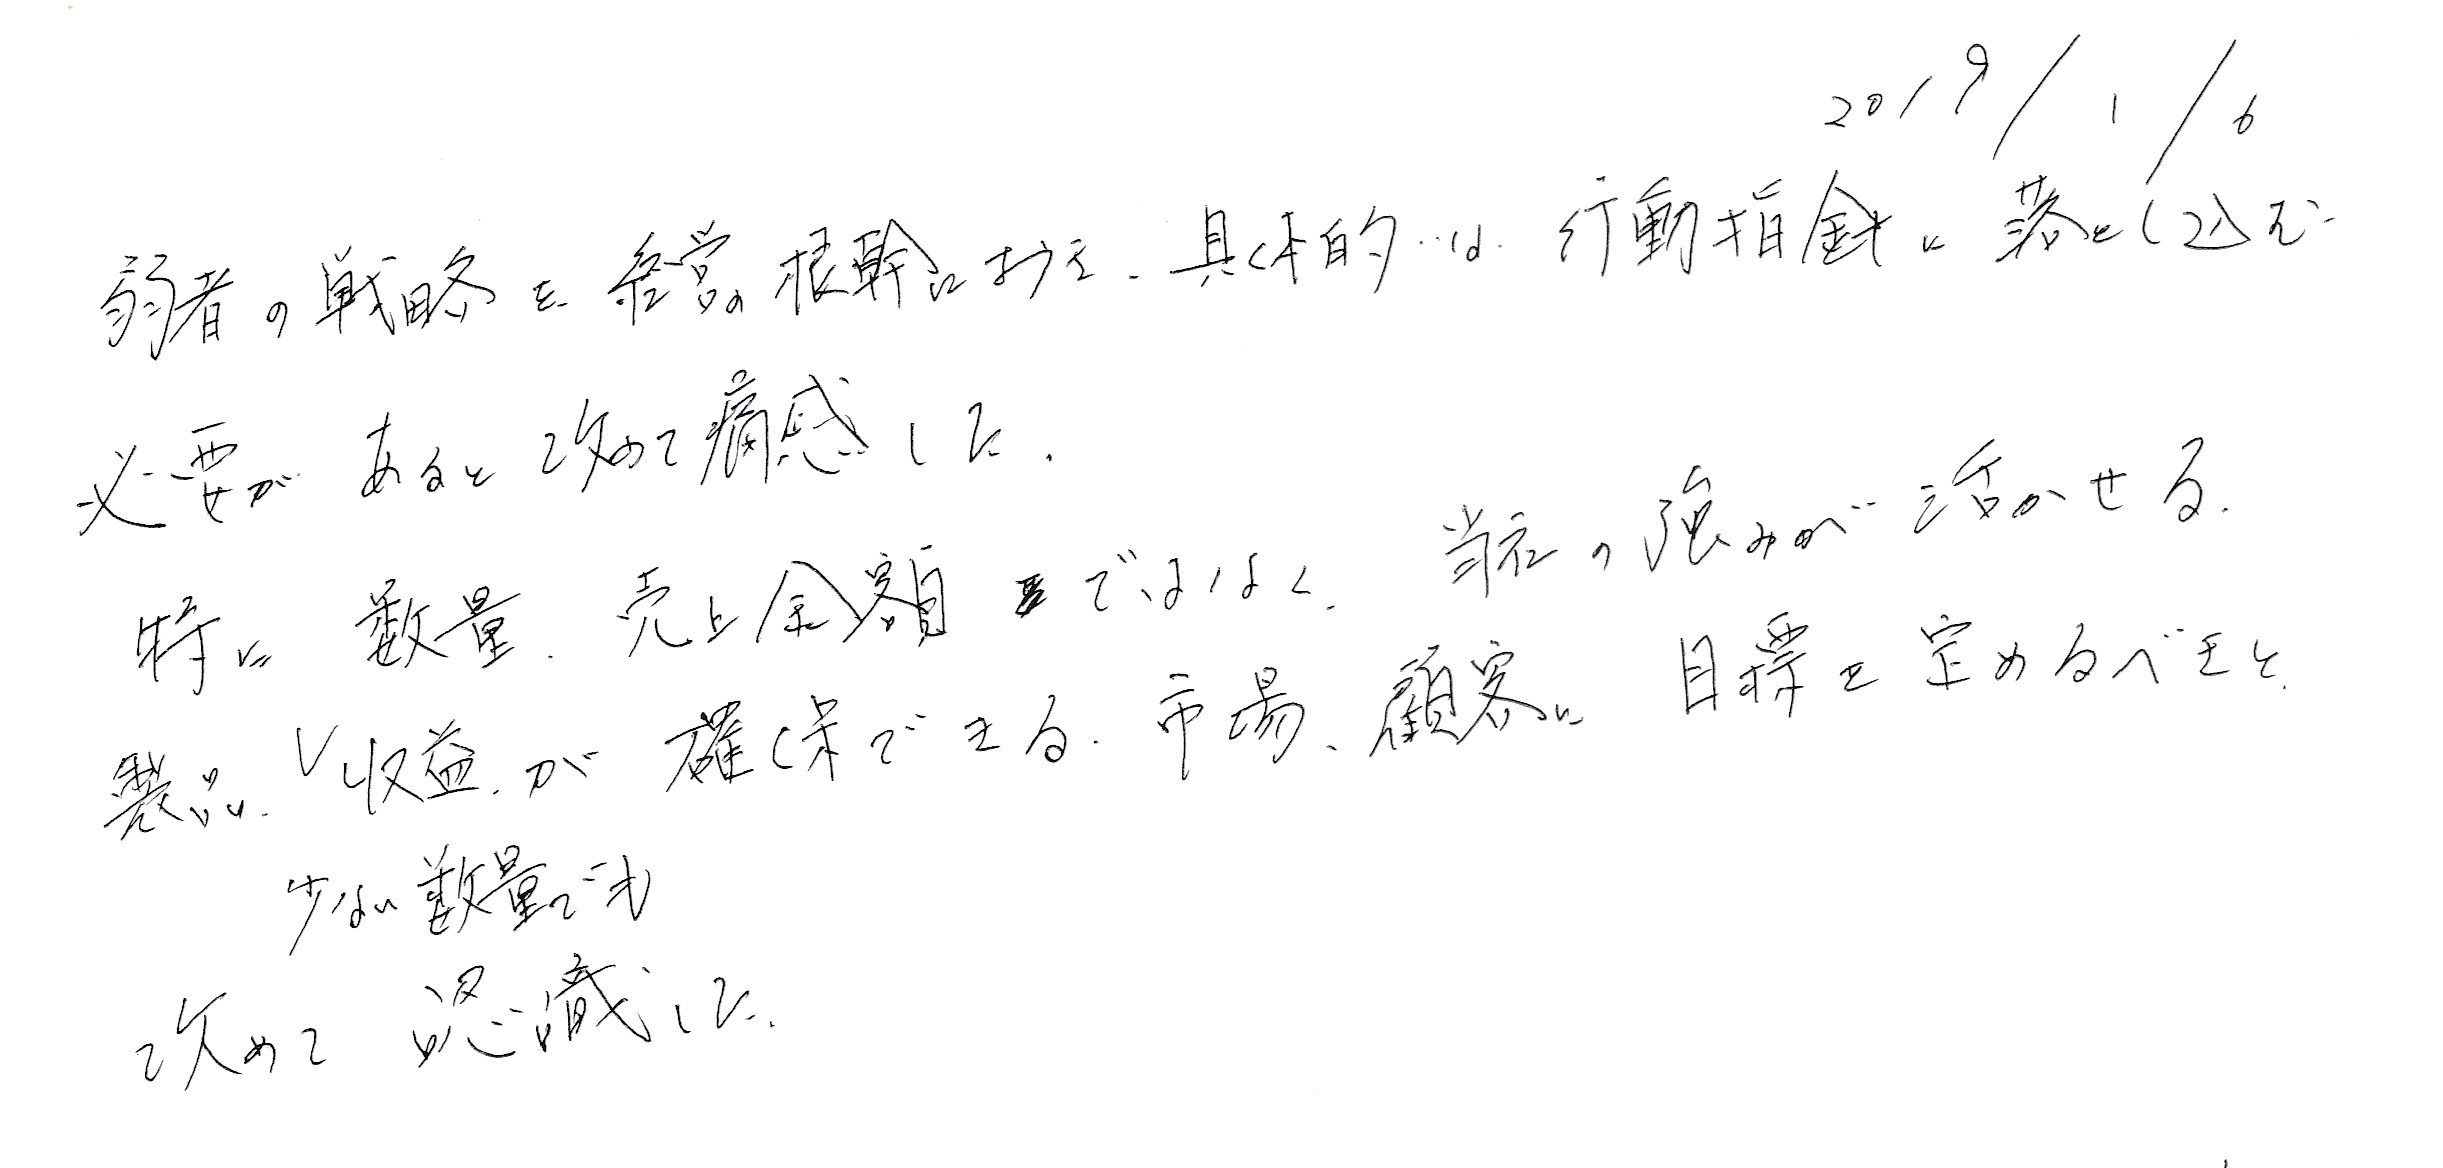 2019/1/6
弱者の戦略を経営の根幹におき、具体的には行動指針に落とし込む
必要があると改めて痛感した。
特に数量、売上金額ではなく、当社の強みが活かせる、
製品、∨収益が確保できる、市場、顧客に目標を定めるべきと
少ない数量でも
改めて認識した。